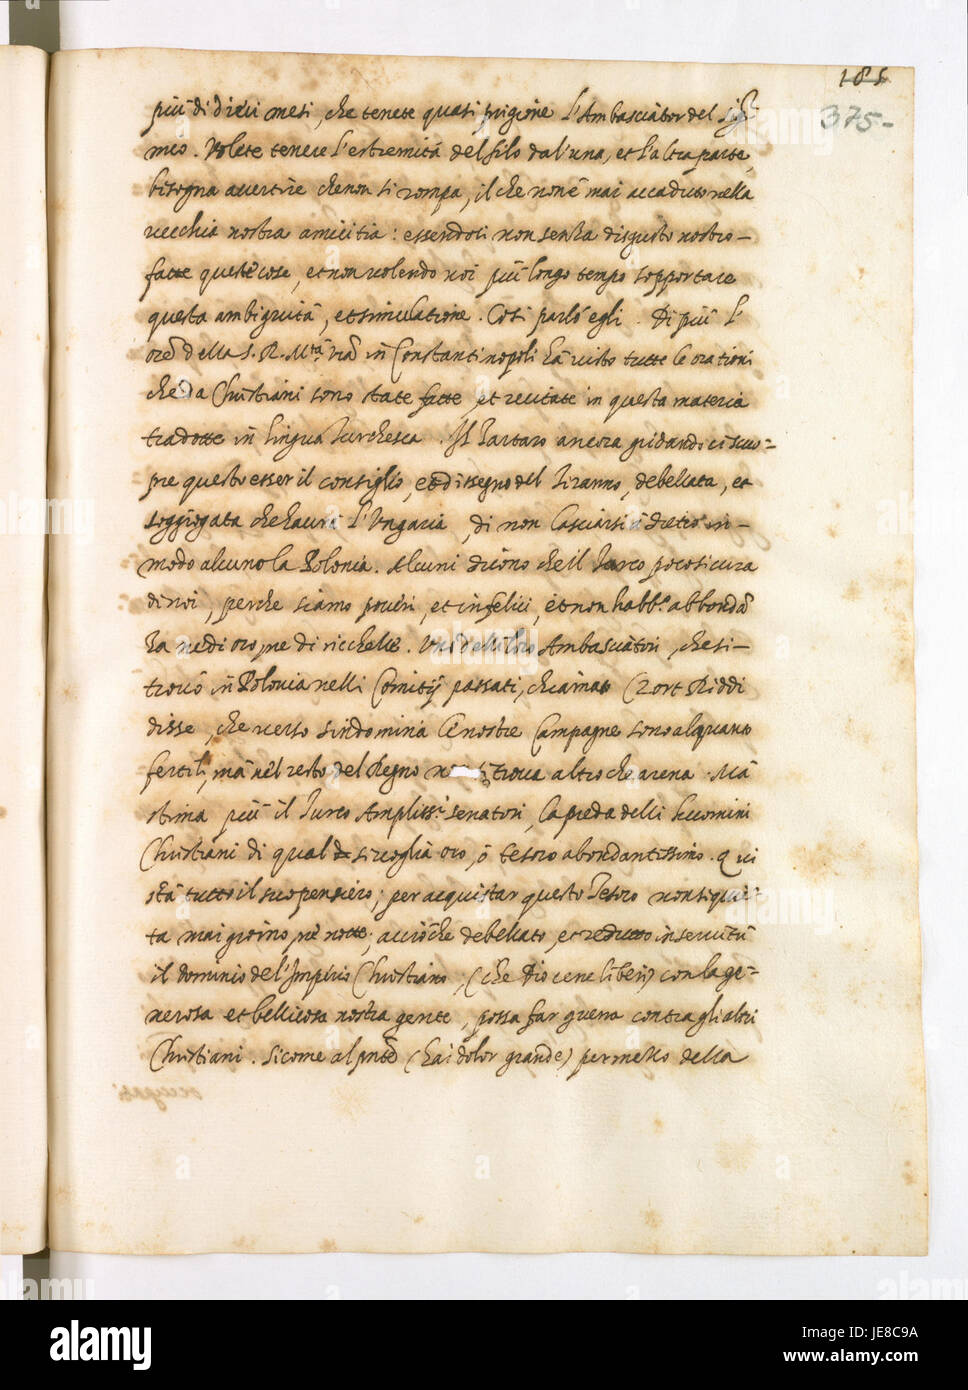 185
375-
più di dieci mesi, che tenete quasi prigione l'Ambasciator del Sigr
mio. Volete tenere l'estremità del filo dal'una, et l'altra parte,
bisogna avertire che non si rompa, il che non è mai accaduto nella
vecchia nostra amicitia: essendosi non senza disgusto nostro-
fatte queste cose, et non volendo noi più longo tempo sopportare
questa ambiguità, et simulatione. Cosi parlò egli. Di più l'
della S. R. Mtà in Constantinopoli hà visto tutte le orationi
che da Christiani sono state fatte, et recitate in questa materia
tradotte in lingua Turchesca. Il Tartaro ancora gridando ci scuo=
pre questo esser il consiglio, et dissegno del Tiranno, debellata, et
soggiogata che haurà l'Ungaria, di non lasciarsi à dietro in-
modo alcuno la Polonia. Alcuni dicono che il Turco poco si cura
di noi, perche siamo poueri, et infelici, et non habb.o abbondā
za ne di oro, ne di ricchezze. Uno delli loro Ambasciatori, che si-
trovò in Polonia nelli Comitij passati, chiamato Czort Riddi
disse, che verso sindominia le nostre Campagne sono alquanto
fertili, mà nel resto del Regno non si trova altro che arena. Mà
stima più il Turco Ampliss.i senatori, la preda delli huomini
Christiani di qual de sivoglia oro, ò tesoro abondantissimo. Qui
stà tutto il suo pensiero; per acquistar questo Tesoro non si quie=
ta mai giorno, nè notte; acciòche debellato, et redutto in servitù
il dominio del'Imperio Christiano, (che Dio cene liberi) con la ge=
nerosa et bellicosa nostra gente, possa far guerra contra gli altri
Christiani. Sicome al pnte (hai dolor grande) per mezzo della